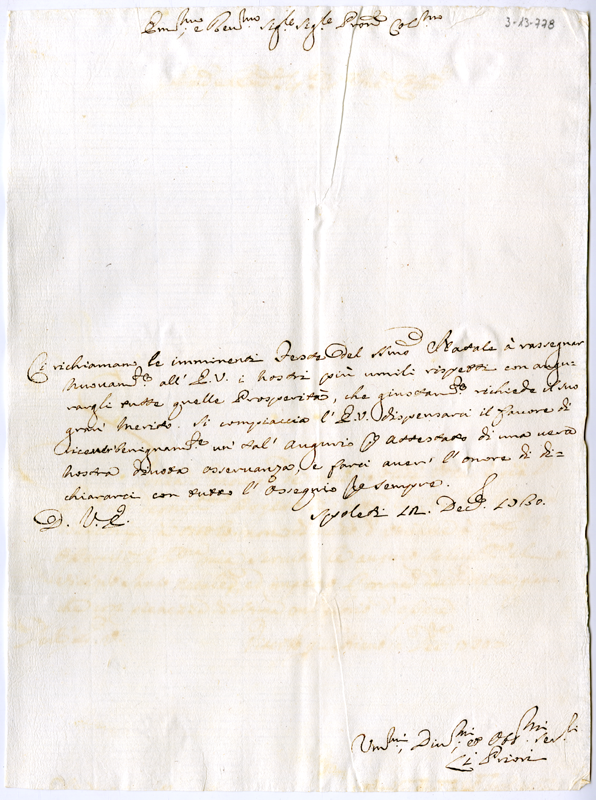 3-13-778
Em.mo e Rev.mo Sig.re Sig.re Pron Col.mo
Ci richiamano le imminenti Feste del SSmo Natale à rassegnar
nuovam.te all' E.V. i nostri più umili rispetti con augu-
rargli tutte quelle Prosperità, che giustam.te richiede il suo
gran merito. Si compiaccia l' E.V. dispensarci il favore di
ricever benignam.te un tal' Augurio p attestato di una vera
nostra divota osservanza, e farci aver l' onore di di-
chiararci con tutto l' Ossequio p sempre.
D. V.E. Spoleti 12. Dec.
Um.mi, Div.mi, et Obb.mi ser.li
Li Priori